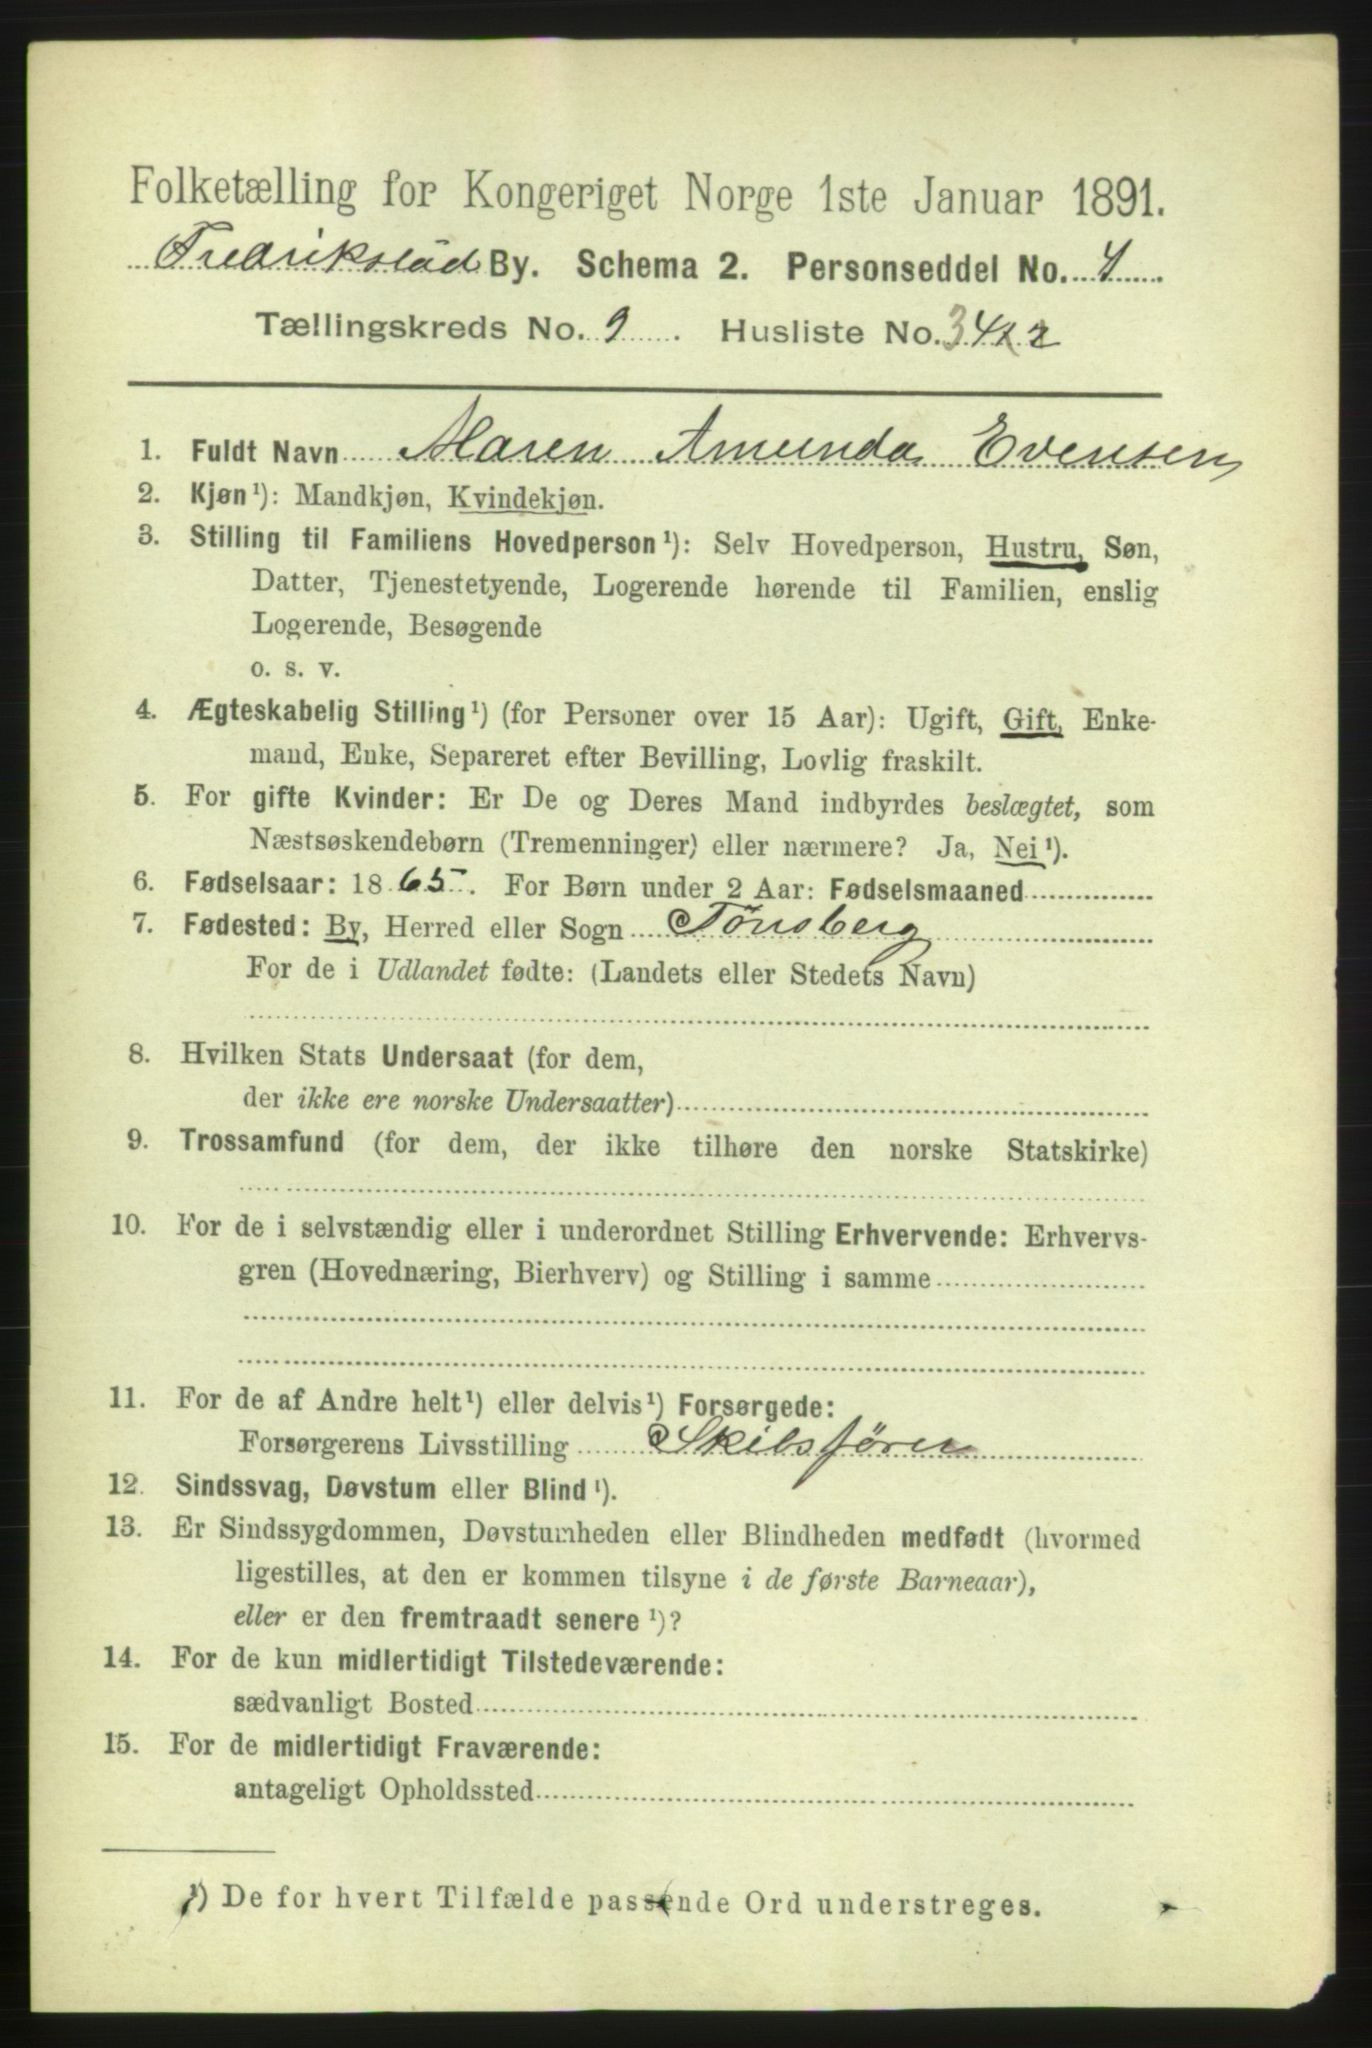 Folketælling for Kongeriget Norge 1ste Januar 1891.
Fredrikstad By. Schema 2. Personseddel No. 4
Tællingskreds No. 9 . Husliste No.
1. Fuldt Navn Maren Amunda Evensen
2. Kjøn¹): Mandkjøn, Kvindekjøn.
3. Stilling til Familiens Hovedperson¹): Selv Hovedperson, Hustru, Søn,
Datter, Tjenestetyende, Logerende hørende til Familien, enslig
Logerende, Besøgende
o. s. v.
4. Ægteskabelig Stilling¹) (for Personer over 15 Aar): Ugift, Gift, Enke-
mand, Enke, Separeret efter Bevilling, Lovlig fraskilt.
5. For gifte Kvinder: Er De og Deres Mand indbyrdes beslægtet, som
Næstsøskendebørn (Tremenninger) eller nærmere? Ja, Nei¹).
6. Fødselsaar: 1865. For Børn under 2 Aar: Fødselsmaaned
7. Fødested: By, Herred eller Sogn Tønsberg
For de i Udlandet fødte: (Landets eller Stedets Navn)
8. Hvilken Stats Undersaat (for dem,
der ikke ere norske Undersaatter)
9. Trossamfund (for dem, der ikke tilhøre den norske Statskirke)
10. For de i selvstændig eller i underordnet Stilling Erhvervende: Erhvervs-
gren (Hovednæring, Bierhverv) og Stilling i samme
11. For de af Andre helt¹) eller delvis¹) Forsørgede:
Forsørgerens Livsstilling Skibsfører
12. Sindssvag, Døvstum eller Blind¹).
13. Er Sindssygdommen, Døvstumheden eller Blindheden medfødt (hvormed
ligestilles, at den er kommen tilsyne i de første Barneaar),
eller er den fremtraadt senere¹)?
14. For de kun midlertidigt Tilstedeværende:
sædvanligt Bosted
15. For de midlertidigt Fraværende:
antageligt Opholdssted
¹) De for hvert Tilfælde passende Ord understreges.